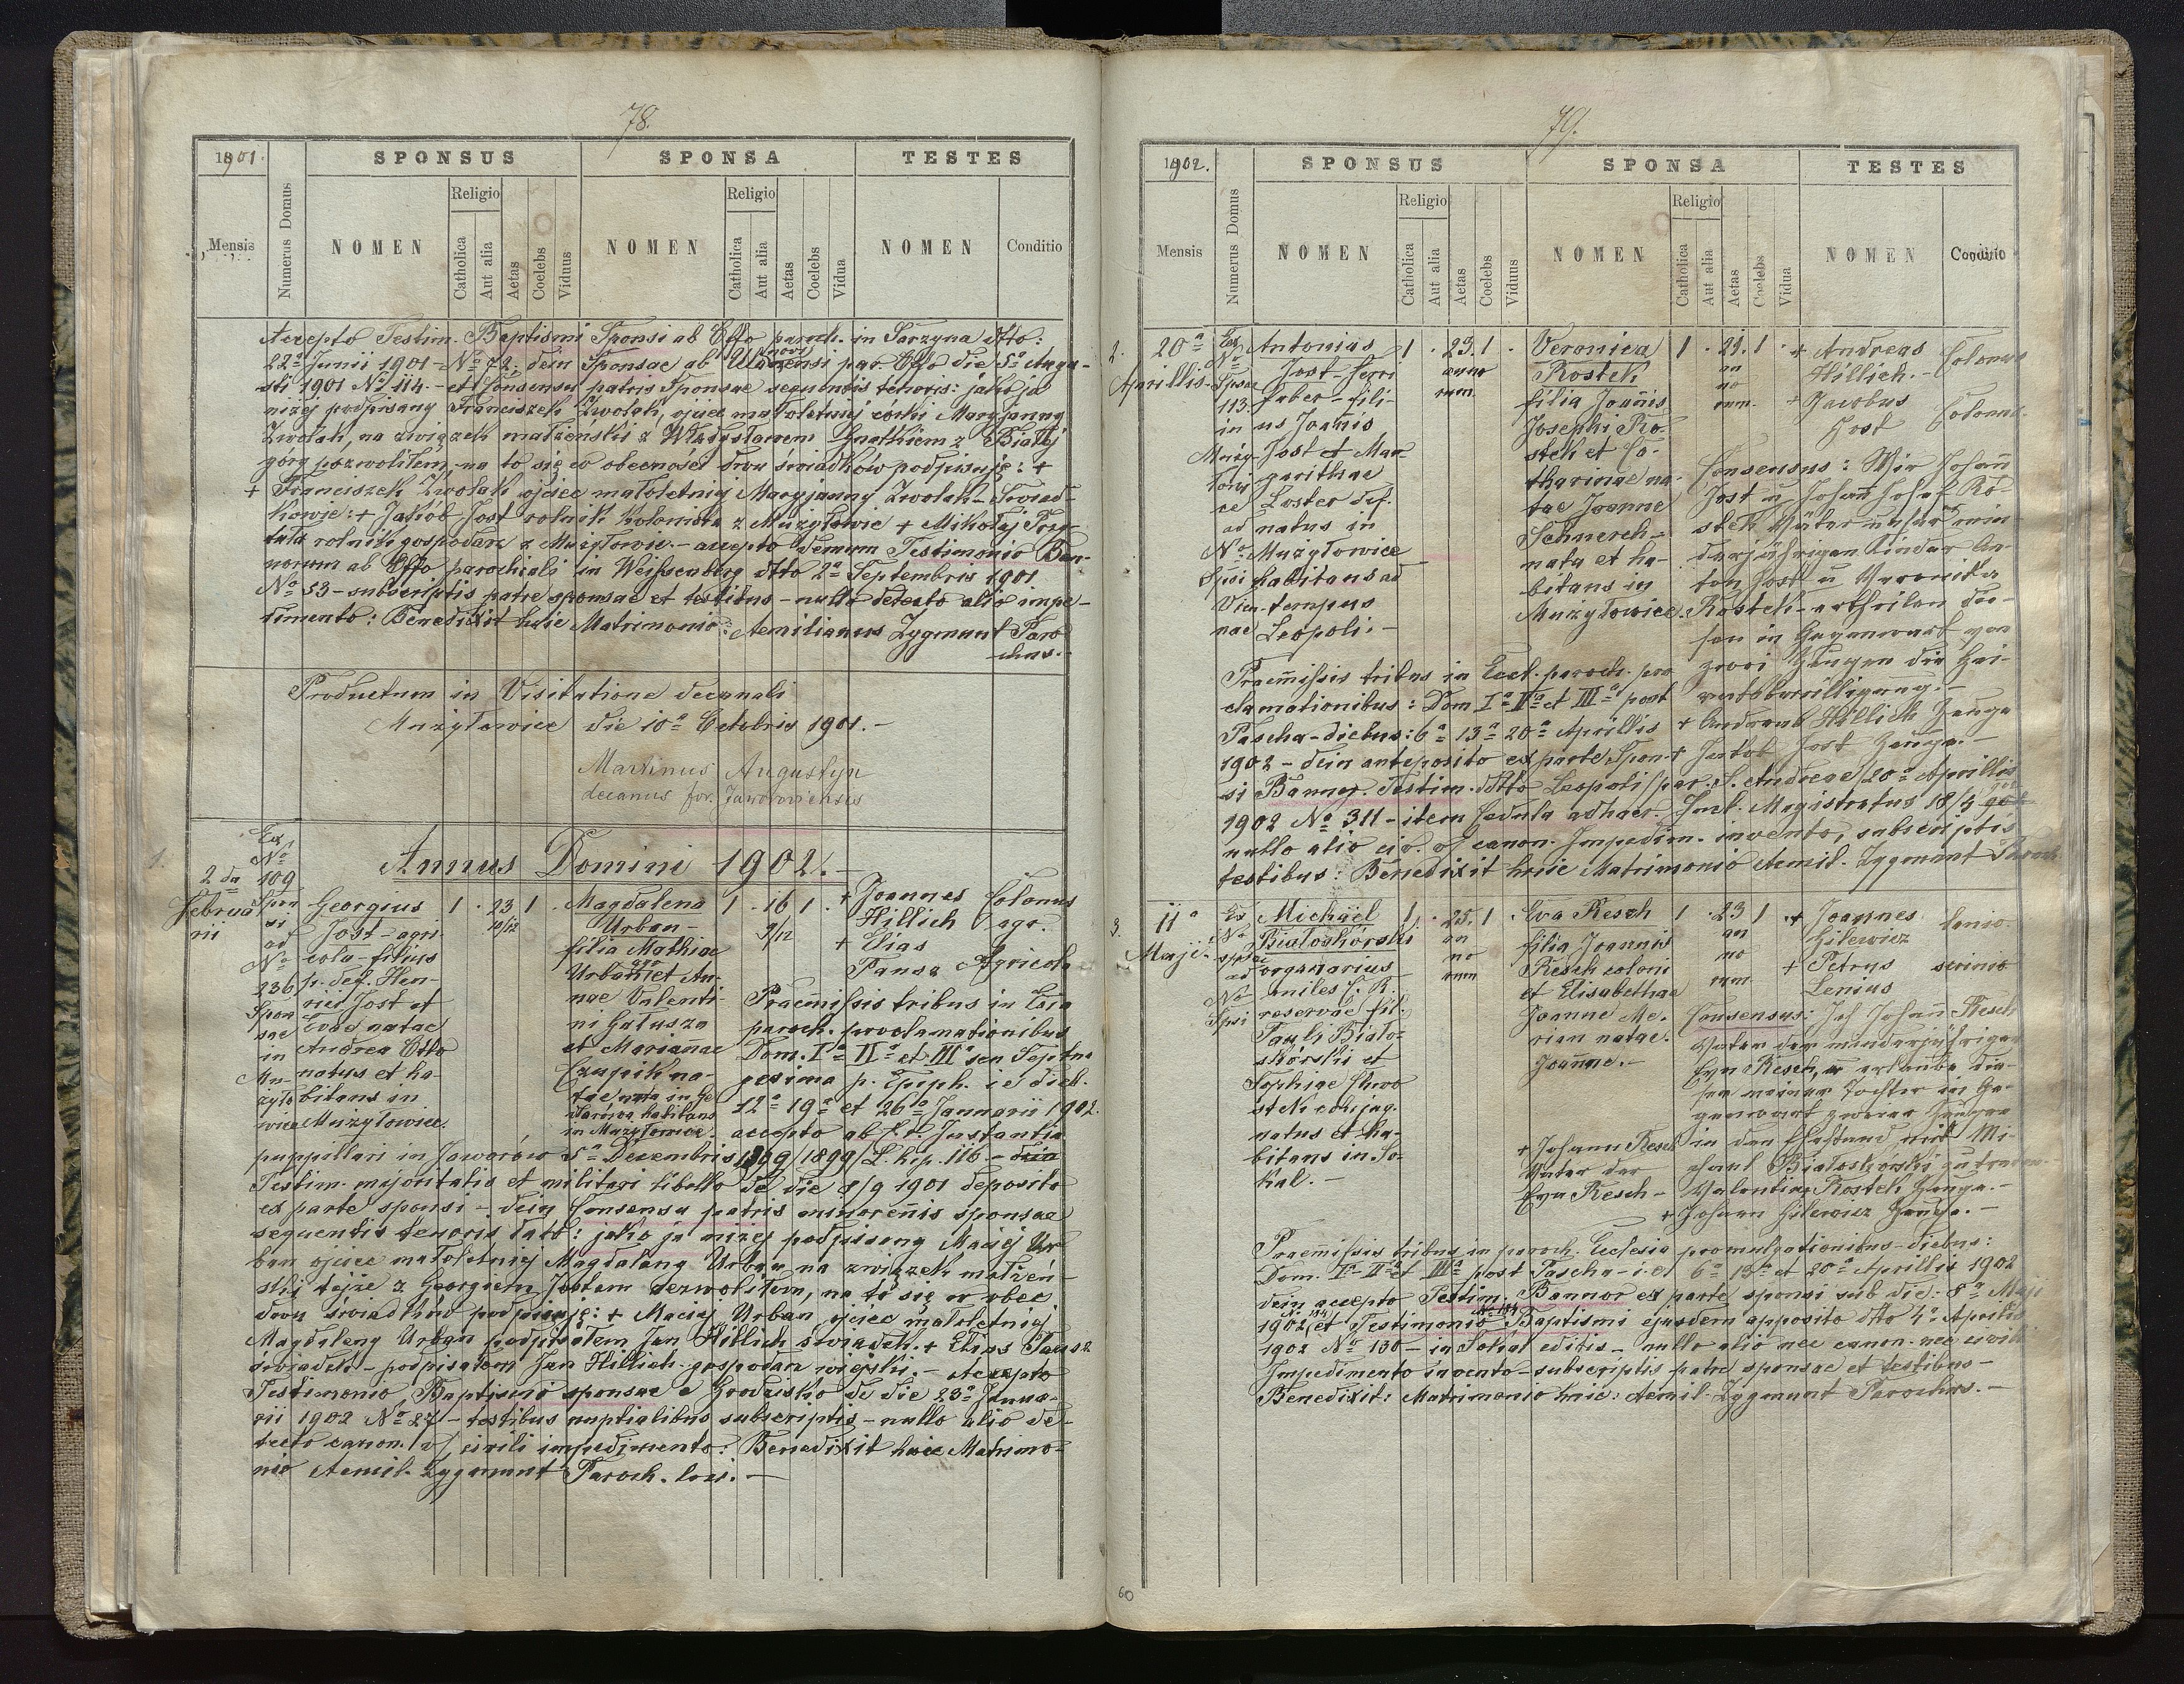 78.
1901.
SPONSUS
SPONSA
TESTES
Mensis
Numerus Domus
NOMEN
Religio
Catholica
Aut alia
Aetas
Coelebs
Viduus
NOMEN
Religio
Catholica
Aut alia
Aetas
Coelebs
Vidua
NOMEN
Conditio
Accepto Testim. Baptismi Sponsi ab Offo paroch. in Sarzyna dtto:
22a Junii 1901 - No 72. dein Sponsae ab par. Offo die 5a Augu-
sti 1901 No 114. - et Consensu patris Sponsae sequentis tenoris: jako ja
niżej podpisany Franciszek Zwolak, ojciec małoletniej córki Maryjanny
Zwolak, na związek małżeński z Władysławem Gnatkiem z Białej
góry pozwoliłem, na to się w obecności dwu świadków podpisuję: +
+ Franciszek Zwolak ojciec małoletniej Maryjanny Zwolak - Świad-
kowie: + Jakób Jost rolnik kolonista z Mużyłowic + Mikołaj
rolnik gospodarz z Mużyłowic. - accepto demum Testimonio Ban-
norum ab Offo parochiali in Weißenberg dtto 2a Septembris 1901
No 53 - subscriptis patre sponsae et testibus - nullo detecto alio impe-
dimento: Benedixit huic Matrimonio: Aemilianus Zygmunt Paro
chus. -
Productum in Visitatione decanali
Mużyłowice die 10a Octobris 1901. -
Martinus Augustyn
decanus for. Javoroviensis
Annus Domini 1902. -
1.
2da
Februa
rii
Ex
No
109
Spon
si
ad
No
236
Spon
sae
in
Mu-
żyło
wice
Georgius
Jost - agri
cola - filius
p. def. Hen-
rici Jost et
Evae natae
Andrea Otto
natus et ha-
bitans in
Mużyłowice.
1 . 23 1 .
10/12
Magdalena
Urban -
filia Mathiae
Urban et An-
nae Valenti-
ni Gałusza
et Mariannae
Czupik na-
tae nata in Ge
darowa habitans
in Mużyłowice.
1 . 16 1 .
9/12
+ Joannes
Hillich
+ Elias
Pansz
Colonus
agr.
Agricola
Praemissis tribus in Ecca
paroch. proclamationibus
Dom. Ia IIa et IIIa seu Septua
gesima p. Epiph. i e dieb.
12a 19a et 26ta Januarii 1902.
accepto ab c. r. Instantia
puppillari in Jaworów 5a Decembris 1899/L. hip. 116. -
Testim. majoritatis et militari libello de die 8/9 1901 deposito
ex parte sponsi - dein Consensu patris minorennis sponsae
sequentis tenoris dato: jako ja niżej podpisany Maciej Ur
ban ojciec małoletniej Magdaleny Urban na związek małżeń-
ski tejże z Georgiem Jostem zezwoliłem, na to się w obec
dwu świadków podpisuję: + Maciej Urban ojciec małoletniej
Magdaleny Urban podpisałem Jan Hillich świadek. + Elias Pansz
świadek - podpisałem Jan Hillich gospodarz wiejski. - Accepto
Testimonio Baptismi sponsae e Grodzisko de die 23a Janua-
rii 1902 No 27 - testibus nuptialibus subscriptis - nullo alio de-
tecto canon. civili impedimento: Benedixit huic Matrimo-
nio Aemil. Zygmunt Paroch. loci. -
79.
1902.
SPONSUS
SPONSA
TESTES
Mensis
Numerus Domus
NOMEN
Religio
Catholica
Aut alia
Aetas
Coelebs
Viduus
NOMEN
Religio
Catholica
Aut alia
Aetas
Coelebs
Vidua
NOMEN
Conditio
2.
20a
Aprillis.
Ex
No
Spsae
113.
in
Muży-
łowi
ce
ad
No
Spsi
Vien-
nae
Antonius
Jost - ferri
faber - fili-
us Joannis
Jost et Mar-
garithae
Loster def.
natus in
Mużyłowice
habitans ad
tempus
Leopoli. -
1 . 23. 1 .
anno
rum
Veronica
Rostek
filia Joannis
Josephi Ro-
stek et Ca-
tharinae na-
tae Joanne
Schnerch -
nata et ha-
bitans in
Mużyłowice.
1 . 21. 1 .
an
no
rum.
+ Andreas
Hillich. -
+ Jacobus
Jost
Colonus
Colonus
Consensus: Wir Johann
Jost u Johann Josef Ro-
stek Väter unserer min
derjährigen Kinder An-
ton Jost u Veronika
Rostek - ertheilen die-
sen in Gegenwart von
zwei Zeugen die Hei-
ratsbewilligung. -
+ Andreas Hillich Zeuge
+ Jakob Jost Zeuge. -
Praemissis tribus in Eccl. paroch. pro
clamationibus: Dom Ia IIa et IIIa post
Pascha - diebus: 6a 13a 20a Aprillis
1902 - dein anteposito ex parte Spon-
si Bannor. Testim. dtto Leopoli / par. S. Andreae / 20a Aprillis
1902 No 311 - item Cedula adhaer. Incl. Magistratus 18/4
nullo alio civ. canon. Impedim. invento, subscriptis
testibus: Benedixit huic Matrimonio Aemil. Zygmunt Paroch
3.
11a
Maji.
Ex
No
spsae
ad
No
Spsi
Michaël
Białoskórski
organarius
miles C. R.
reservae fil.
Pauli Biało-
skórski et
Sophiae
conjug.
natus et ha-
bitans in So-
kal. -
1 . 25. 1 .
an
no
rum
Eva Resch
filia Joannis
Resch coloni
et Elisabethae
Joanne Me-
rian natae.
Joanne. -
1 . 23 1 .
an
no
rum.
+ Joannes
Gilewicz
+ Petrus
Lenius
Consensus: Ich Johann Resch
Vater der minderjährigen
Eva Resch, erlaube die-
ser meiner Tochter in Ge-
genwart zweier Zeugen
in den Ehestand mit Mi-
chael Białoskórski zu treten. -
+ Johann Resch
Vater der
Eva Resch -
Valentin Rostek Zeuge. -
+ Johann Gilewicz Zeuge. -
Praemissis tribus in paroch. Ecclesia promulgationibus - diebus:
Dom. Ia IIa et IIIa post Pascha - i. e. 6a 13a et 20a Aprillis 1902
dein accepto Testim. Bannor ex parte sponsi sub die: 8a Maji
1902, et Testimonio Baptismi ejusdem apposito dtto 4a Aprilis
1902 No 130 - in Sokal editis - nullo alio nec canon. nec civili
Impedimento invento - subscriptis patre sponsae et testibus -
Benedixit: Matrimonio huic: Aemil. Zygmunt Parochus. -
60